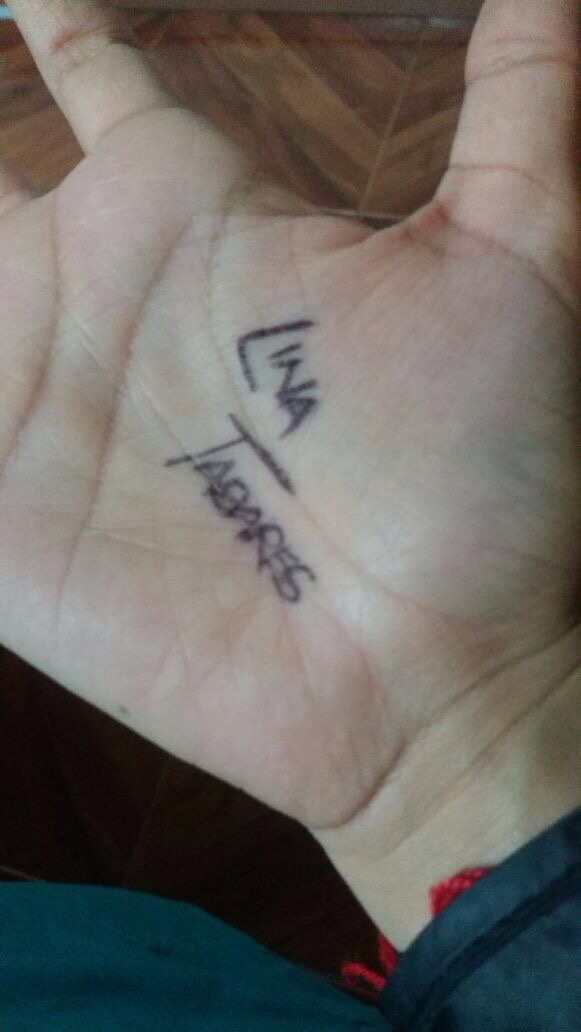 LINA
TABARES